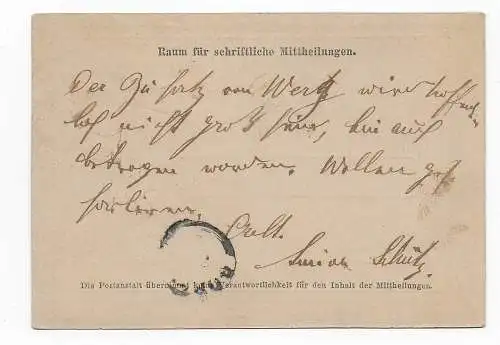 Raum für schriftliche Mittheilungen.
Der Zusatz von Wertz wird hoffent-
lich nicht groß sein, bin auch
betrogen worden. Wollen
Acht.
Schütz.
Die Postanstalt übernimmt keine Verantwortlichkeit für den Inhalt der Mittheilungen.